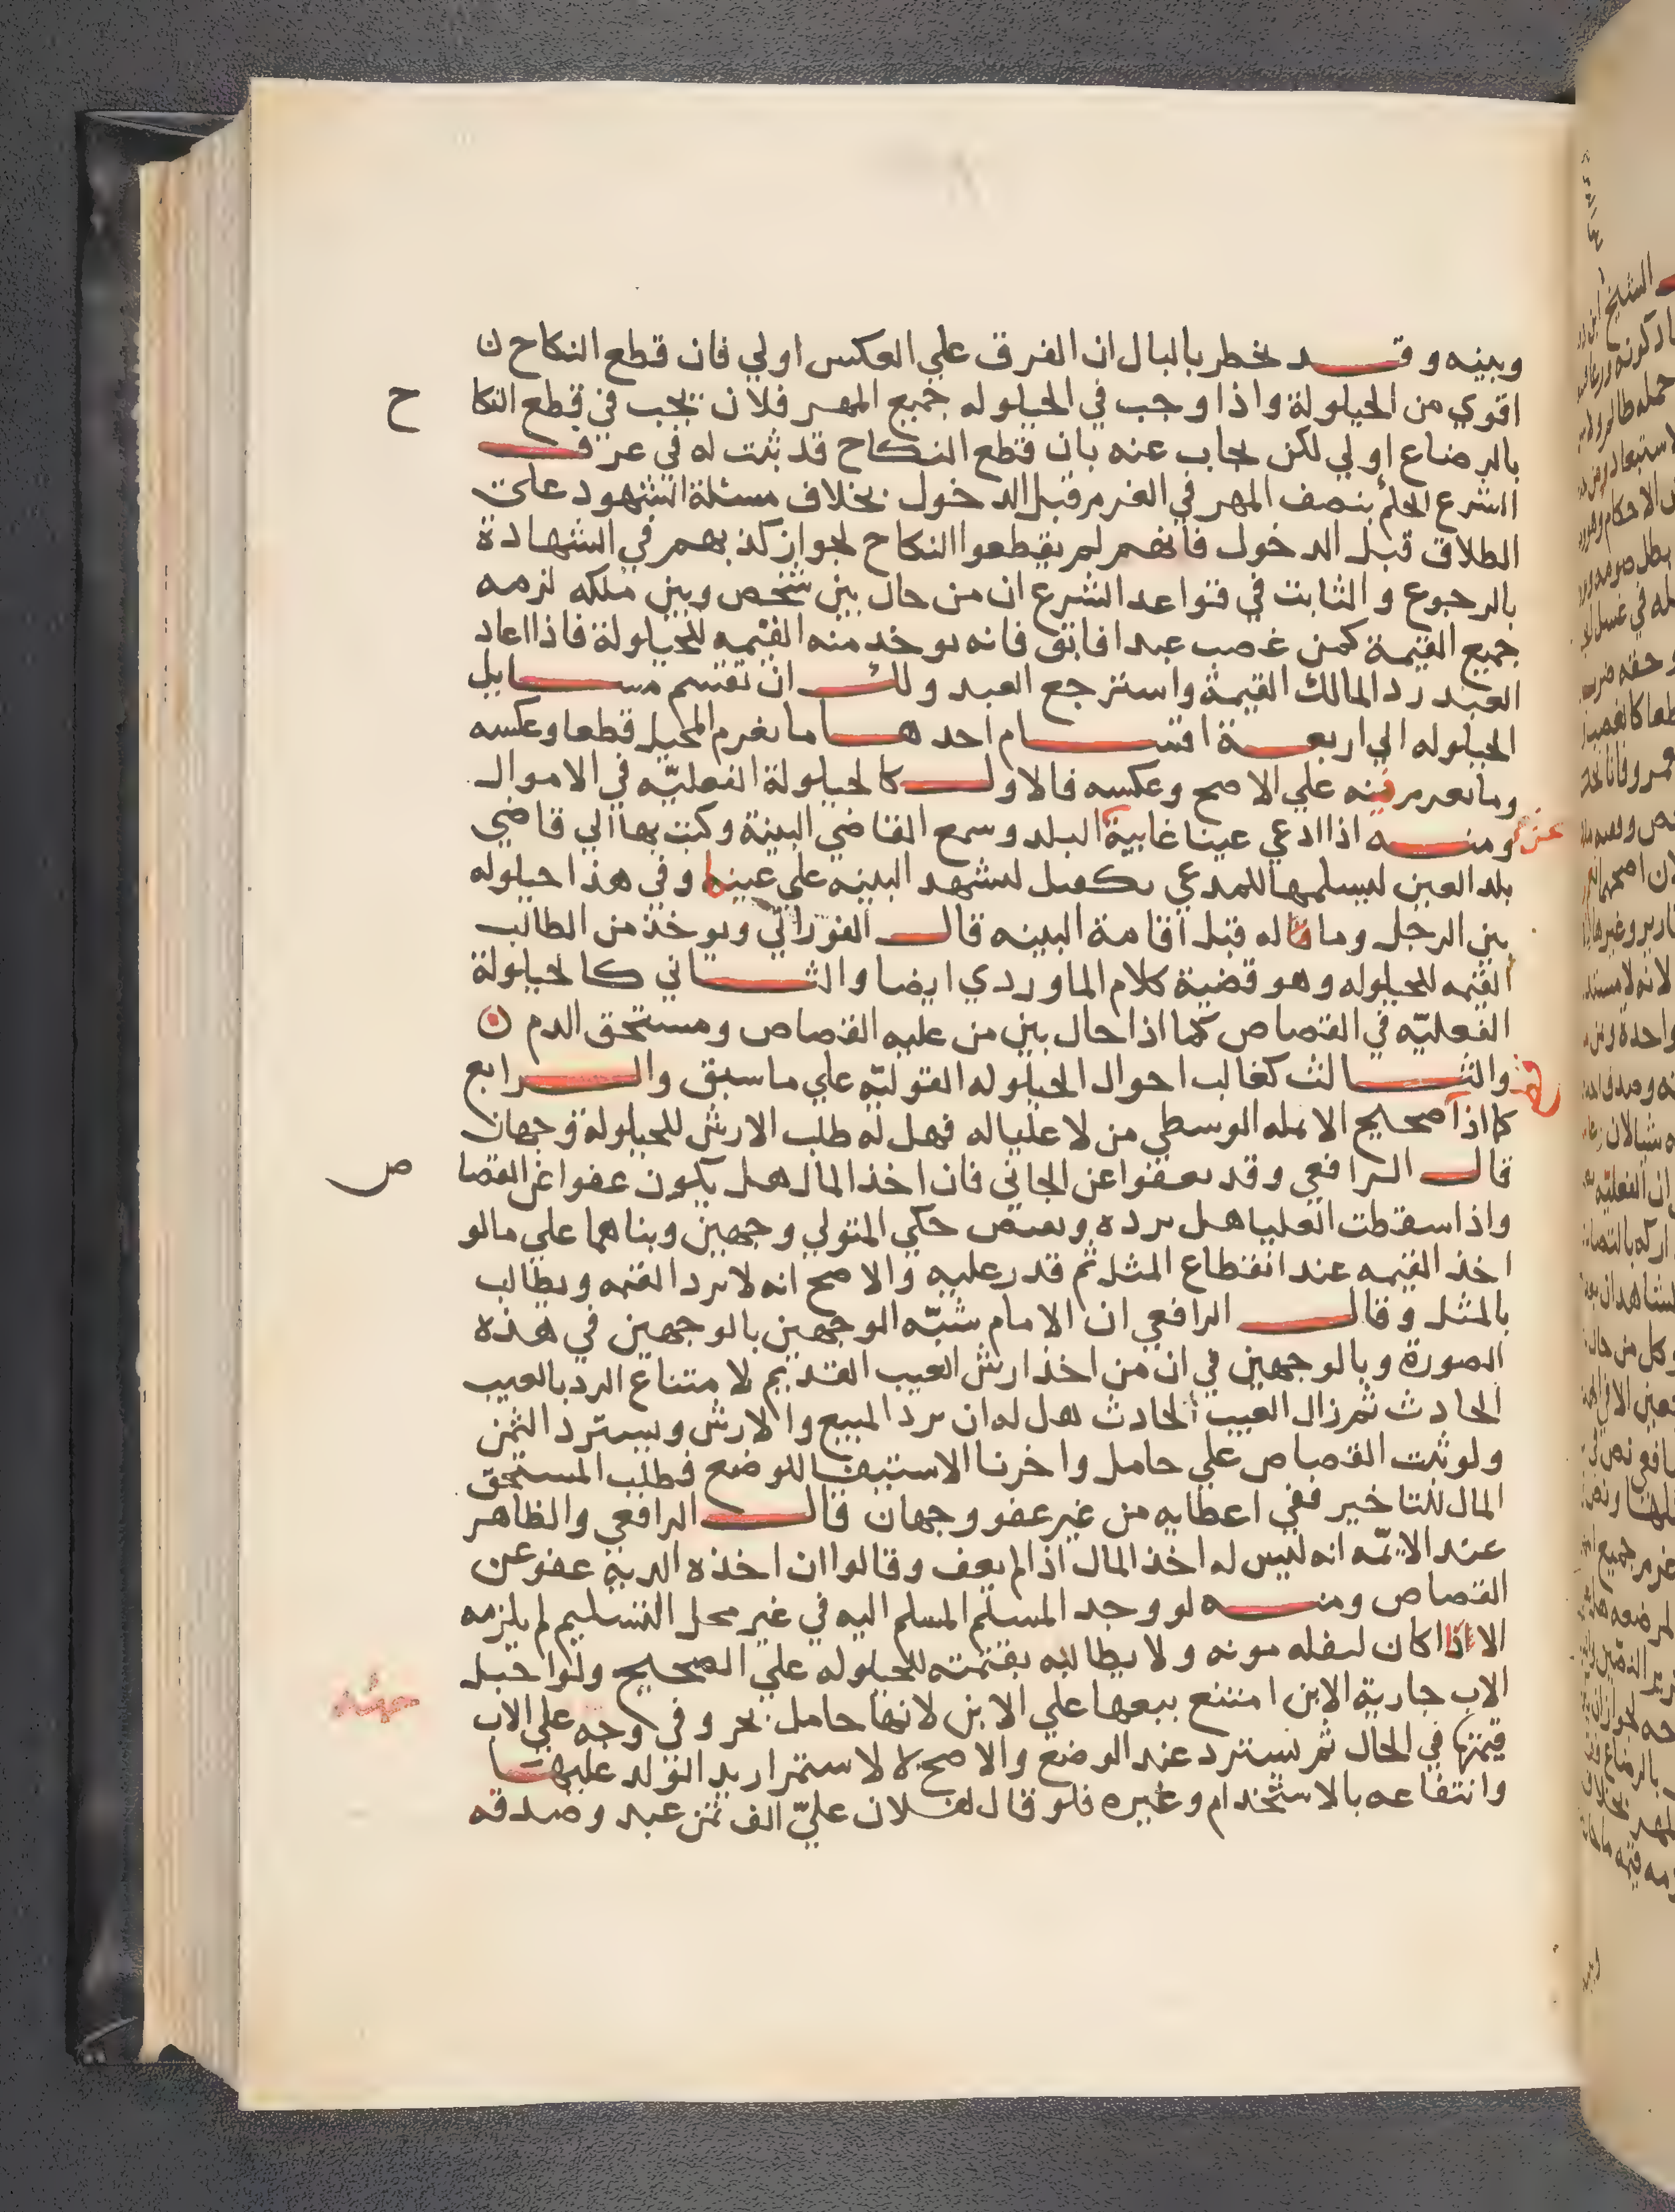 وبينه وقد يخطر بالبال ان الفرق علي العكس اولي فان قطع النكاح ن
اقوي من الحيلولة واذا وجب في الحيلوله جميع المهر فلان يجب في قطع النكا ح
بالرضاع اولي لكن يجاب عنه بان قطع النكاح قد ثبت له في عرف
الشرع الحكم بنصف المهر في الغرم قبل الدخول بخلاف مسئلة الشهود علي
الطلاق قبل الدخول فانهم لم يقطعوا النكاح لجواز كذبهم في الشهادة
بالرجوع والثابت في قواعد الشرع ان من حال بين شخص وبين ملكه لزمه
جميع القيمة كمن غصب عبدا فابق فانه يوخد منه القيمه للحيلولة فاذا اعاد
العبد رد المالك القيمة واسترجع العبد ولك ان تقسم مسايل
الحيلوله الي اربعة اقسام احدها ما يغرم المحيل قطعا وعكسه
وما يغرم فيه علي الاصح وعكسه فالاول كالحيلولة الفعليّه في الاموال
ومنه اذا ادعي عينا غايبة عن البلد وسمع القاضي البينة وكتب بها الي قاضي
بلد العين ليسلمها للمدعي بكفيل لتشهد البينه علي عينها وفي هذا حيلوله
بين الرجل وماله قبل اقامة البينه قال الفوراني ويوخذ من الطالب
القيمه للحيلوله وهو قضية كلام الماوردي ايضا والثاني كالحيلولة
الفعليّه في القصاص كما اذا حال بين من عليه القصاص ومستحق الدم ن
والثالث كغالب احوال الحيلوله القوليّه علي ما سبق والرابع
كما اذا قطع صحيح الانمله الوسطي من لا عليا له فهل له طلب الارش للحيلولة وجهان
قال الرافعي وقد يعفوا عن الجاني فان اخذ المال هل يكون عفوا عن القصا ص
واذا سقطت العليا هل يرده ويقتص حكي المتولي وجهين وبناهما علي ما لو
اخذ القيمه عند انقطاع المثل ثم قدر عليه والاصح انه لا يرد القيمه ويطالب
بالمثل وقال الرافعي ان الامام شبّه الوجهين بالوجهين في هذه
الصورة وبالوجهين في ان من اخذ ارش العيب القديم لامتناع الرد بالعيب
الحادث ثم زال العيب الحادث هل له ان يرد المبيع والارش ويسترد الثمن
ولو ثبت القصاص علي حامل واخرنا الاستيفا للوضع فطلب المستحق
المال للتاخير ففي اعطايه من غير عفو وجهان قال الرافعي والظاهر
عند الايمّه انه ليس له اخذ المال اذا لم يعف وقالوا ان اخذه الدية عفو عن
القصاص ومنه لو وجد المسلم المسلم اليه في غير محل التسليم لم يلزمه
الا اذا كان لنقله مونه ولا يطالبه بقيمته للحيلوله علي الصحيح ولو احبل
الاب جارية الابن امتنع بيعها علي الابن لانها حامل بحر وفي وجه علي الاب
قيمتها في الحال ثم يسترد عند الوضع والاصح لا لاستمرار يد الولد عليها
وانتفاعه بالاستخدام وغيره فلو قال لفلان عليّ الف ثمن عبد وصدقه